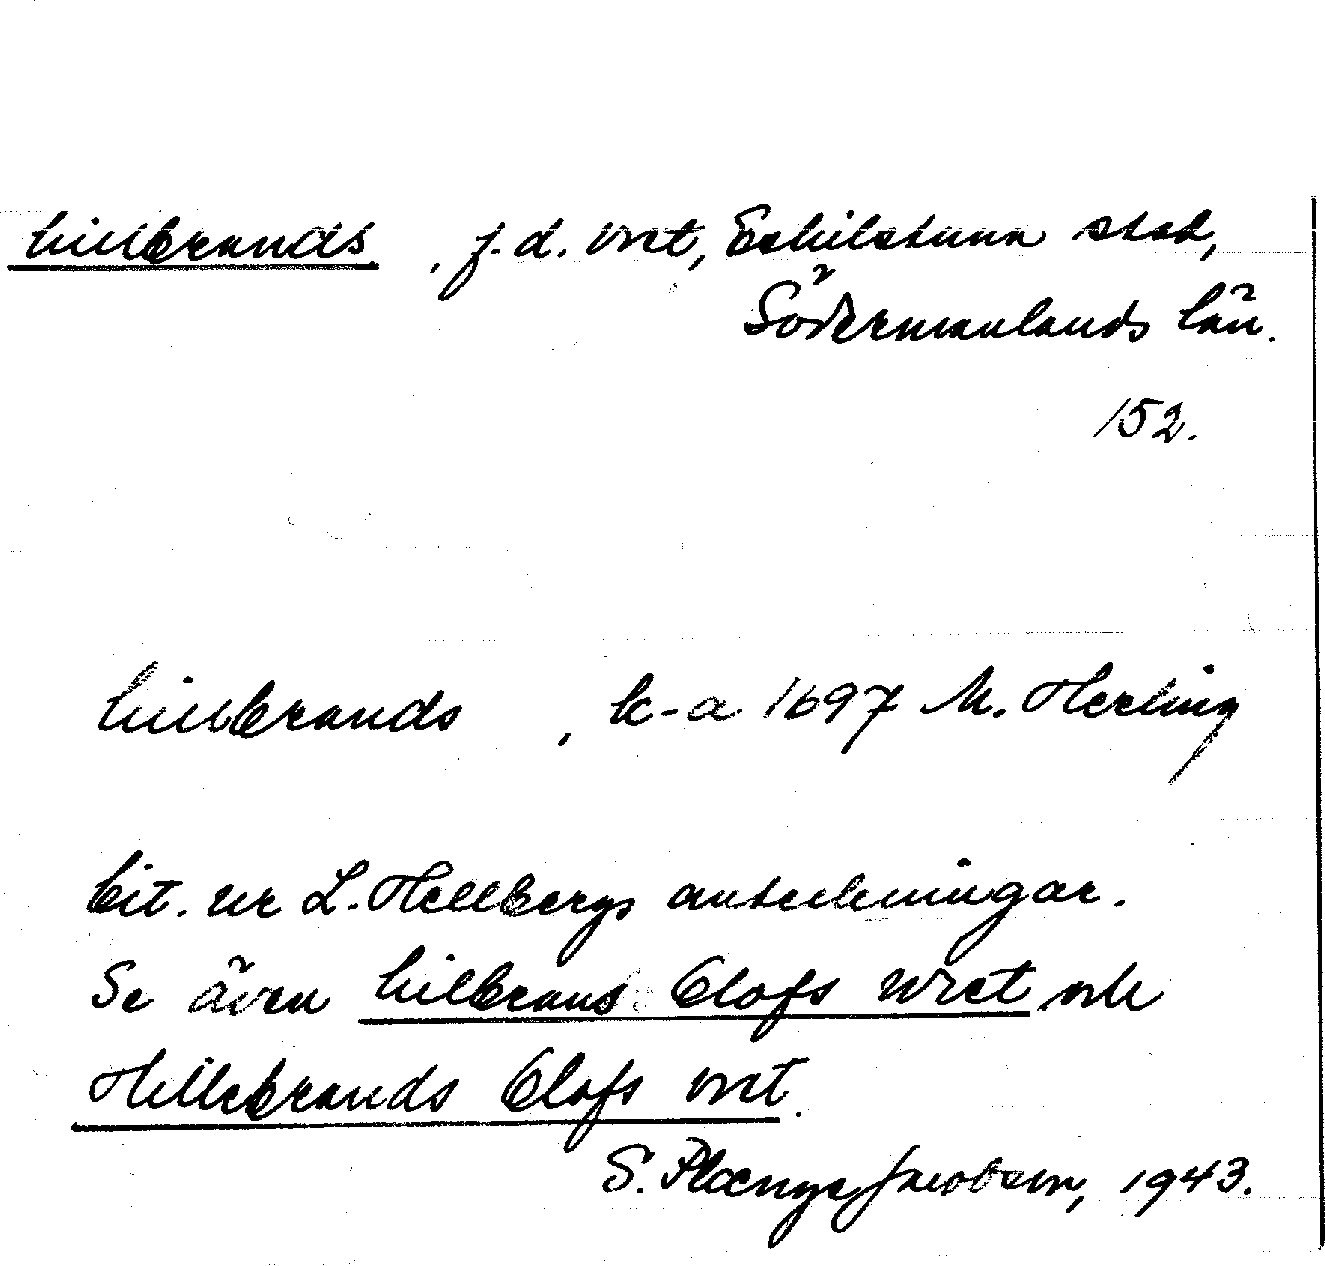 hillbrands , f.d. vret, Eskilstuna stad,
Södermanlands län.
152.
hillbrands , k-a 1697 M. Herling
Cit. ur L. Hellbergs anteckningar.
Se även hilbrans Olofs wret och
Hillebrands Olofs vret.
S. Plænge Jacobson, 1943.